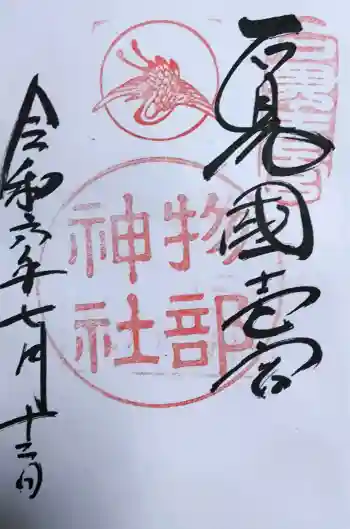 石見國一宮
物部
神社
令和六年七月十二日